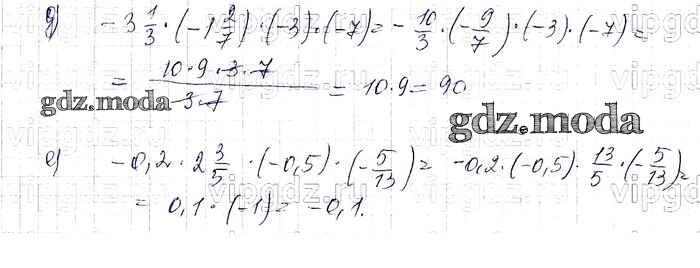 д) -3 1/3 · (-1 2/7) · (-3) · (-7) = - 10/3 · (- 9/7) · (-3) · (-7) =
= 10 · 9 · 3 · 7 / 3 · 7 = 10 · 9 = 90
gdz.moda
gdz.moda
е) -0,2 · 2 3/5 · (-0,5) · (- 5/13) = -0,2 · (-0,5) · 13/5 · (- 5/13) =
= 0,1 · (-1) = -0,1.